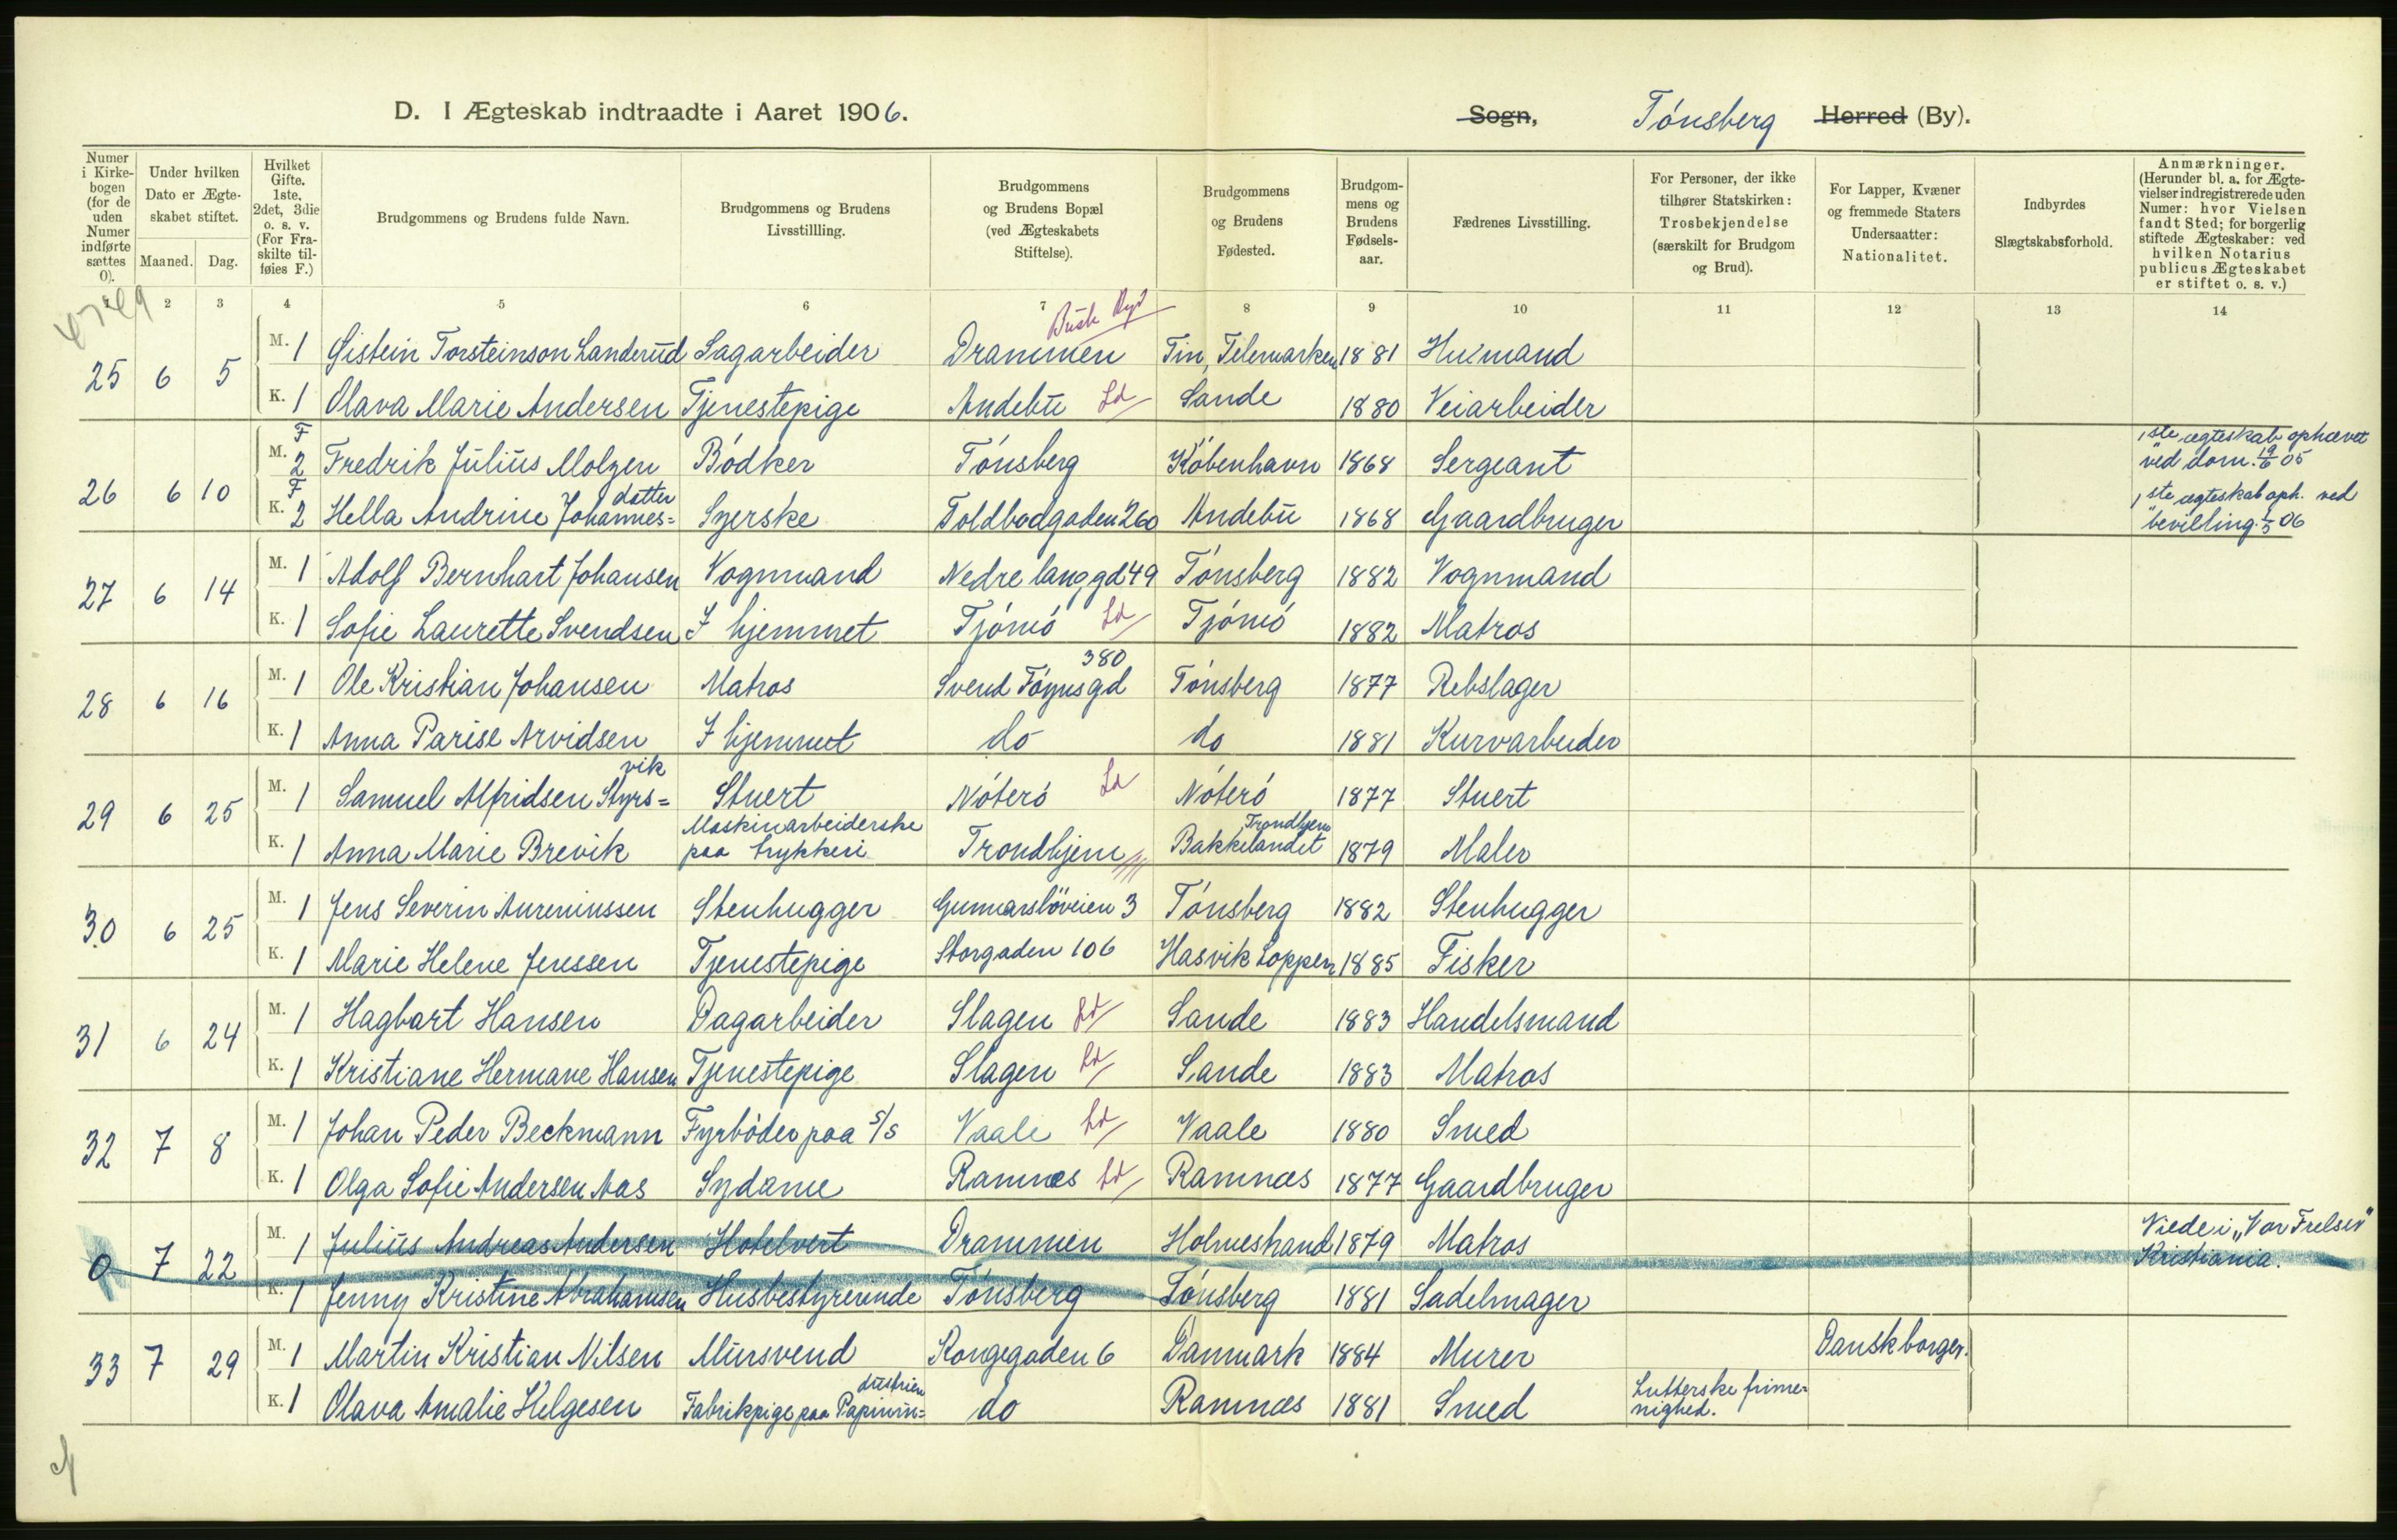 D. I Ægteskab indtraadte i Aaret 1906.
Sogn, Tönsberg Herred (By).
Numer i Kirkebogen (for de uden Numer indførte sættes 0).
Under hvilken Dato er Ægteskabet stiftet.
Maaned. Dag.
Hvilket Gifte. 1ste, 2det, 3die o. s. v. (For Fraskilte tilføies F.)
Brudgommens og Brudens fulde Navn.
Brudgommens og Brudens Livsstillling.
Brudgommens og Brudens Bopæl (ved Ægteskabets Stiftelse).
Brudgommens og Brudens Fødested.
Brudgommens og Brudens Fødselsaar.
Fædrenes Livsstilling.
For Personer, der ikke tilhører Statskirken: Trosbekjendelse (særskilt for Brudgom og Brud).
For Lapper, Kvæner og fremmede Staters Undersaatter: Nationalitet.
Indbyrdes Slægtskabsforhold.
Anmærkninger. (Herunder bl. a. for Ægtevielser indregistrerede uden Numer: hvor Vielsen fandt Sted; for borgerlig stiftede Ægteskaber: ved hvilken Notarius publicus Ægteskabet er stiftet o. s. v.)
2 3 4 5 6 7 8 9 10 11 12 13 14
25 6 5 M. 1 Gistein Torsteinson Landerud Sagarbeider Drammen Busk Tin, Telemarken 1881 Husmand
K. 1 Olava Marie Andersen Tjenestepige Andebu Ld Sande 1880 Veiarbeider
26 6 10 M. F 2 Fredrik Julius Molzen Bödker Tönsberg Köbenhavn 1868 Sergeant 1ste ægteskab ophævet ved dom. 19/6 05
K. F 2 Hella Andrine Johannes=datter Syerske Toldbodgaden 26o Andebu 1868 Gaardbruger 1ste ægteskab oph. ved bevilling 1/5 06
27 6 14 M. 1 Adolf Bernhart Johansen Vognmand Nedre langgd 49 Tönsberg 1882 Vognmand
K. 1 Sofie Laurette Svendsen I hjemmet Tjömö Ld Tjömö 1882 Matros
28 6 16 M. 1 Ole Kristian Johansen Matros Svend Föynsgd 380 Tönsberg 1877 Rebslager
K. 1 Anna Parise Arvidsen I hjemmet do do 1881 Kurvarbeider
29 6 25 M. 1 Samuel Alfridsen Styrs=vik Stuert Nöterö Ld Nöterö 1877 Stuert
K. 1 Anna Marie Brevik Maskinarbeiderske paa trykkeri Trondhjem Bakkelandet Trondhjem 1879 Maler
30 6 25 M. 1 Jens Severin Aureniussen Stenhugger Gunnarsböveien 3 Tönsberg 1882 Stenhugger
K. 1 Marie Helene Jenssen Tjenestepige Storgaden 106 Hasvik Loppen 1885 Fisker
31 6 24 M. 1 Hagbart Hansen Dagarbeider Slagen Ld Sande 1883 Handelsmand
K. 1 Kristiane Hermane Hansen Tjenestepige Slagen Ld Sande 1883 Matros
32 7 8 M. 1 Johan Peder Beckmann Fyrböder paa s/s Vaale Ld Vaale 1880 Smed
K. 1 Olga Sofie Andersen Aas Sydame Ramnæs Ld Ramnæs 1877 Gaardbruger
0 7 22 M. 1 Julius Andreas Andersen Hotelvert Drammen Holmestrand 1879 Matros Viede i „Vor Frelser" Kristiania.
K. 1 Jenny Kristine Abrahamsen Husbestyrerinde Tönsberg Tönsberg 1881 Sadelmager
33 7 29 M. 1 Martin Kristian Nilsen Mursvend Kongegaden 6 Danmark 1884 Murer Dansk borger.
K. 1 Olava Amalie Helgesen Fabrikpige paa Papirin=dustrien do Ramnæs 1881 Smed Lutterske frimenighed.